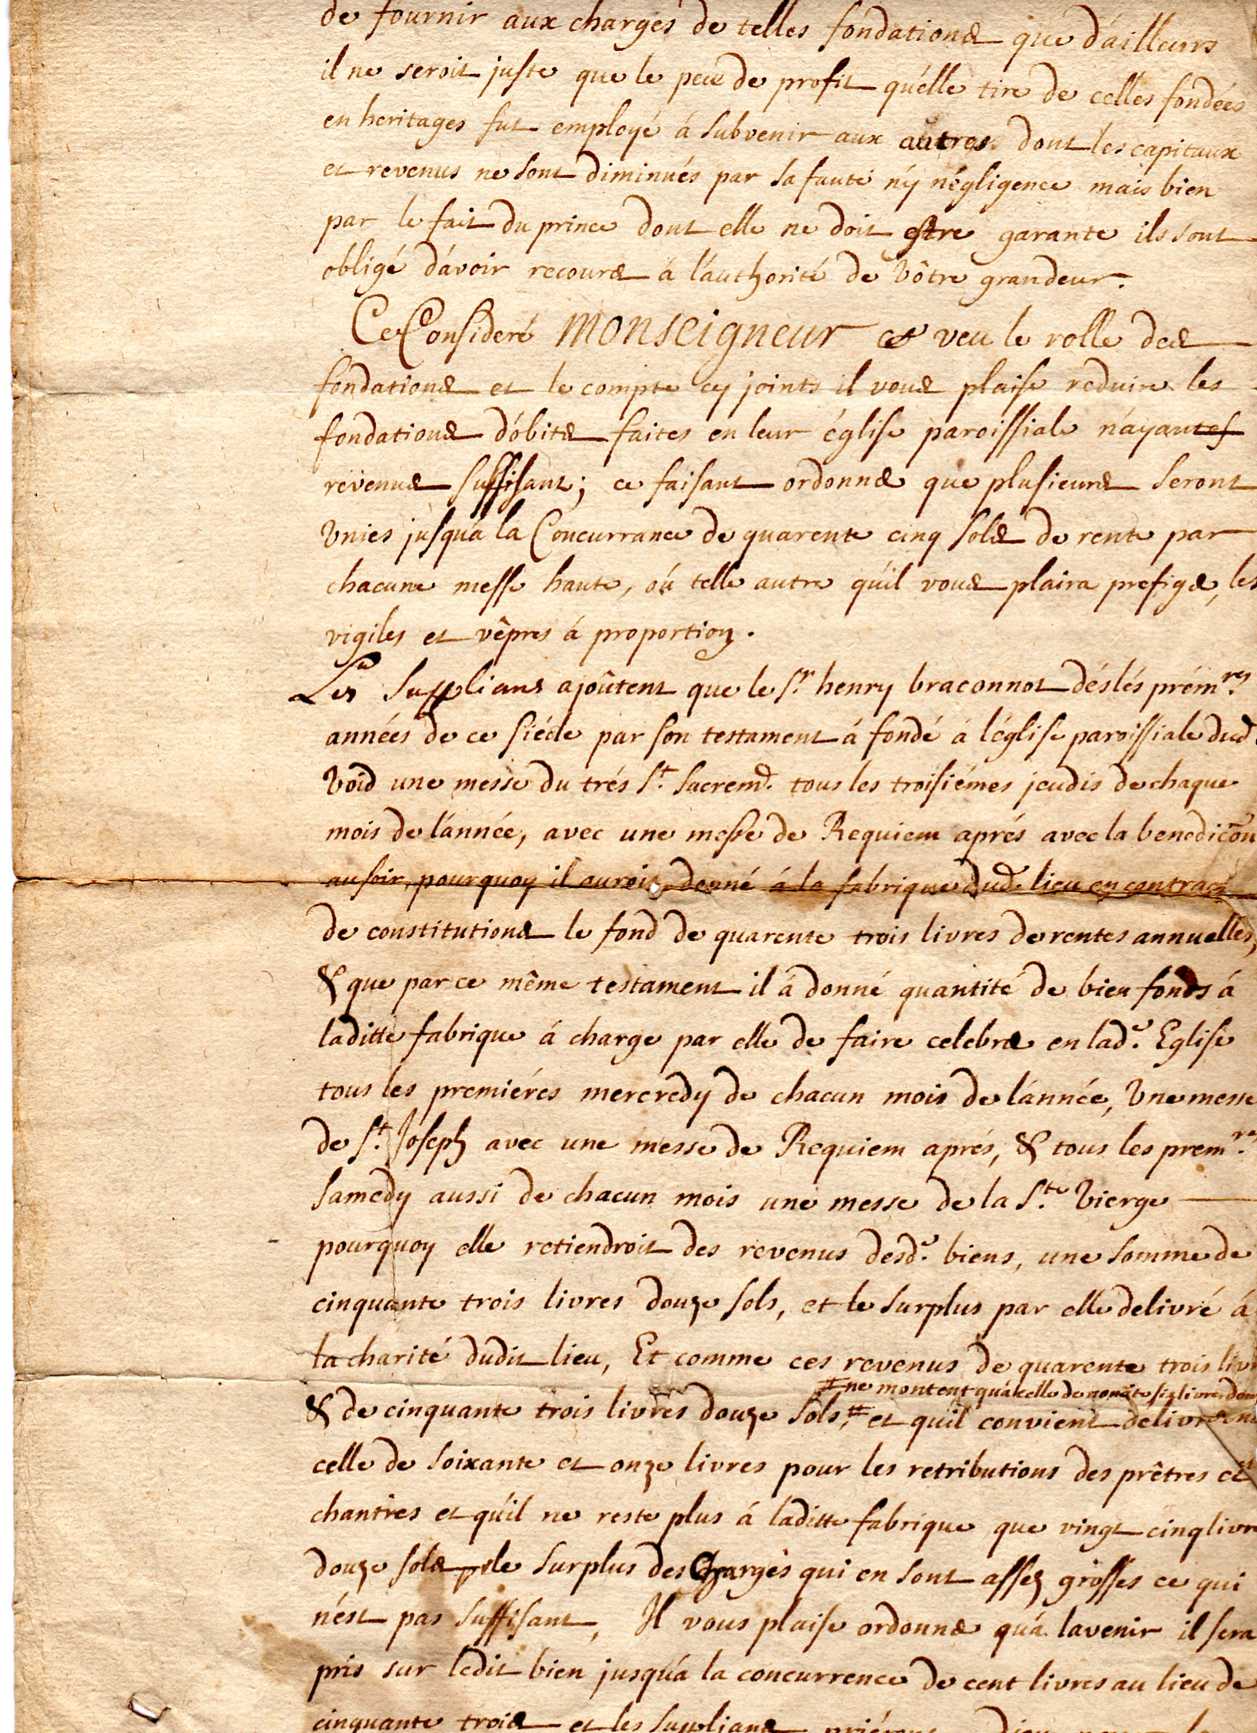 de fournir aux charges de telles fondations que d'ailleurs
il ne seroit juste que le peu de profit qu'elle tire de celles fondées
en heritages fut employé á subvenir aux autres dont les capitaux
et revenus ne sont diminués par sa faute n'y négligence mais bien
par le fait du prince dont elle ne doit estre garante ils sont
obligé d'avoir recours á l'authorité de vôtre grandeur.
Ce Consideré MONSEIGNEUR et veu le rolle des
fondations et le compte cy joints il vous plaise reduire les
fondations d'obits faites en leur église paroissiale n'ayantes
revenus suffisant; ce faisant ordonner que plusieurs seront
Vnies jusqu'á la Concurrance de quarente cinq sols de rente par
chacune messe haute, oú telle autre qu'il vous plaira prefiger, les
vigiles et vêpres á proportion.
Les Supplians ajoûtent que le Sr. henry braconnot dés lés prémres.
années de ce siécle par son testament á fondé á l'église paroissiale dud.
Void une messe du trés St. Sacremt. tous les troisiémes jeudis de chaque
mois de l'année, avec une messe de Requiem aprés avec la benedicõn
au soir, pourquoy il auroit donné á la fabrique dud. lieu en contracts
de constitutions le fond de quarente trois livres de rentes annuelles,
& que par ce même testament il á donné quantité de bien fonds á
laditte fabrique á charge par elle de faire celebrer en lade. Eglise
tous les premiéres mercredy de chacun mois de l'année, Vne messe
de St. Joseph avec une messe de Requiem aprés, & tous les premrs.
Samedy aussi de chacun mois une messe de la Ste. Vierge
pourquoy elle retiendroit des revenus desde. biens, une somme de
cinquante trois livres douze sols, et le surplus par elle delivré á
la charité dudit lieu, Et comme ces revenus de quarente trois livres
ne montent qu'á celle de nonante six livres douze
& de cinquante trois livres douze sols, # et qu'il convient delivrer
celle de soixante et onze livres pour les retributions des prêtres et
chantres et qu'il ne reste plus á laditte fabrique que vingt cinq livres
douze sols le surplus des Charges qui en sont assez grosses ce qui
n'est pas suffisant, Il vous plaise ordonner qu'á lavenir il sera
pris sur ledit bien jusqu'á la concurrence de cent livres au lieu de
cinquante trois et les Supplians priéront Dieu